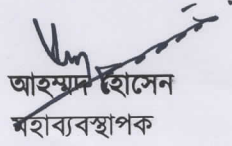 আহম্মদ হোসেন
মহাব্যবস্থাপক